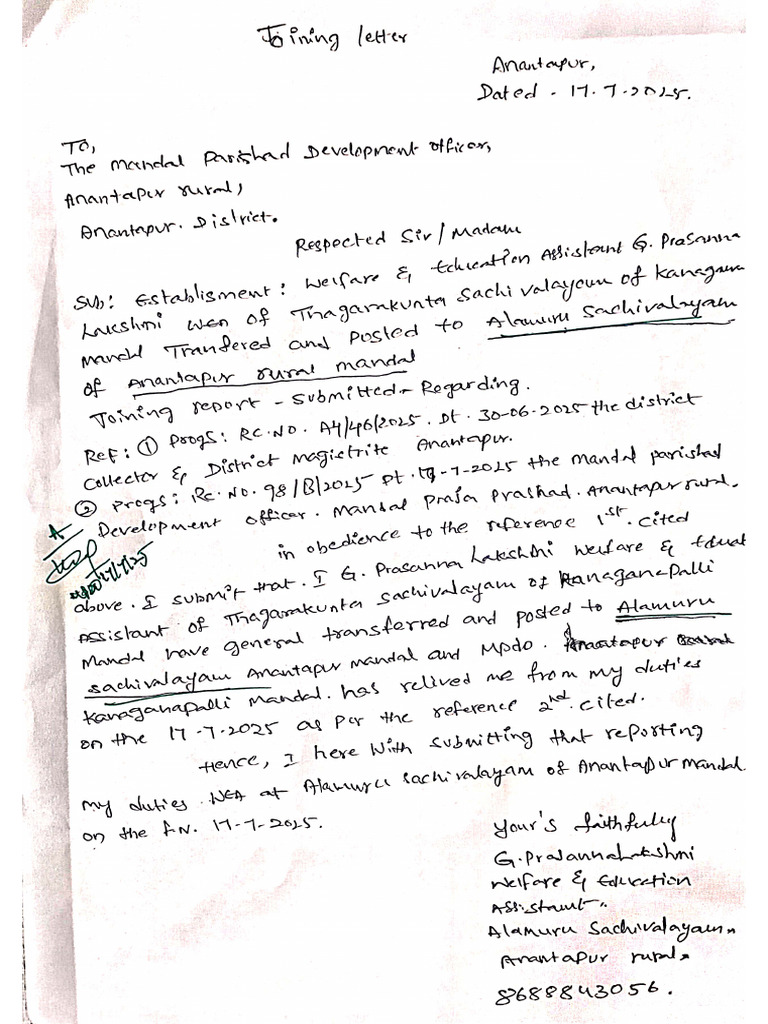 Joining letter
Anantapur,
Dated - 17.7.2025.
To,
The Mandal Parishad Development officer,
Anantapur rural,
Anantapur. District.
Respected Sir/Madam
Sub: Establisment: Welfare & Education Assistant G. Prasanna
Lakshmi WEA of Thagarakunta Sachivalayam of Kanagana
Mandal Transfered and Posted to Alamuru Sachivalayam
of Anantapur rural mandal
Joining report - Submitted - Regarding.
Ref: ① Progs: RC.NO. A4/46/2025. Dt. 30-06-2025 the district
Collector & District Magistrite Anantapur.
② Progs: Rc.No. 98/B/2025 Dt. -7-2025 the mandal parishad
Development officer. Mandal Praja Prashad. Anantapur rural.
in obedience to the reference 1st. cited
above. I submit that. I G. Prasanna Lakshmi Welfare & Educat
Assistant of Thagarakunta Sachivalayam of Kanaganapalli
Mandal have general transferred and posted to Alamuru
Sachivalayam Anantapur mandal and Mpdo. Anantapur
Kanaganapalli Mandal. has relived me from my duties
on the 17-7-2025 as per the reference 2nd. cited.
Hence, I here with submitting that reporting
my duties WEA at Alamuru Sachivalayam of Anantapur mandal
on the F.N. 17-7-2025.
17/7/25
Your's faithfully
G. PrasannaLakshmi
Welfare & Education
Assistant.
Alamuru Sachivalayam
Anantapur rural
8688843056.